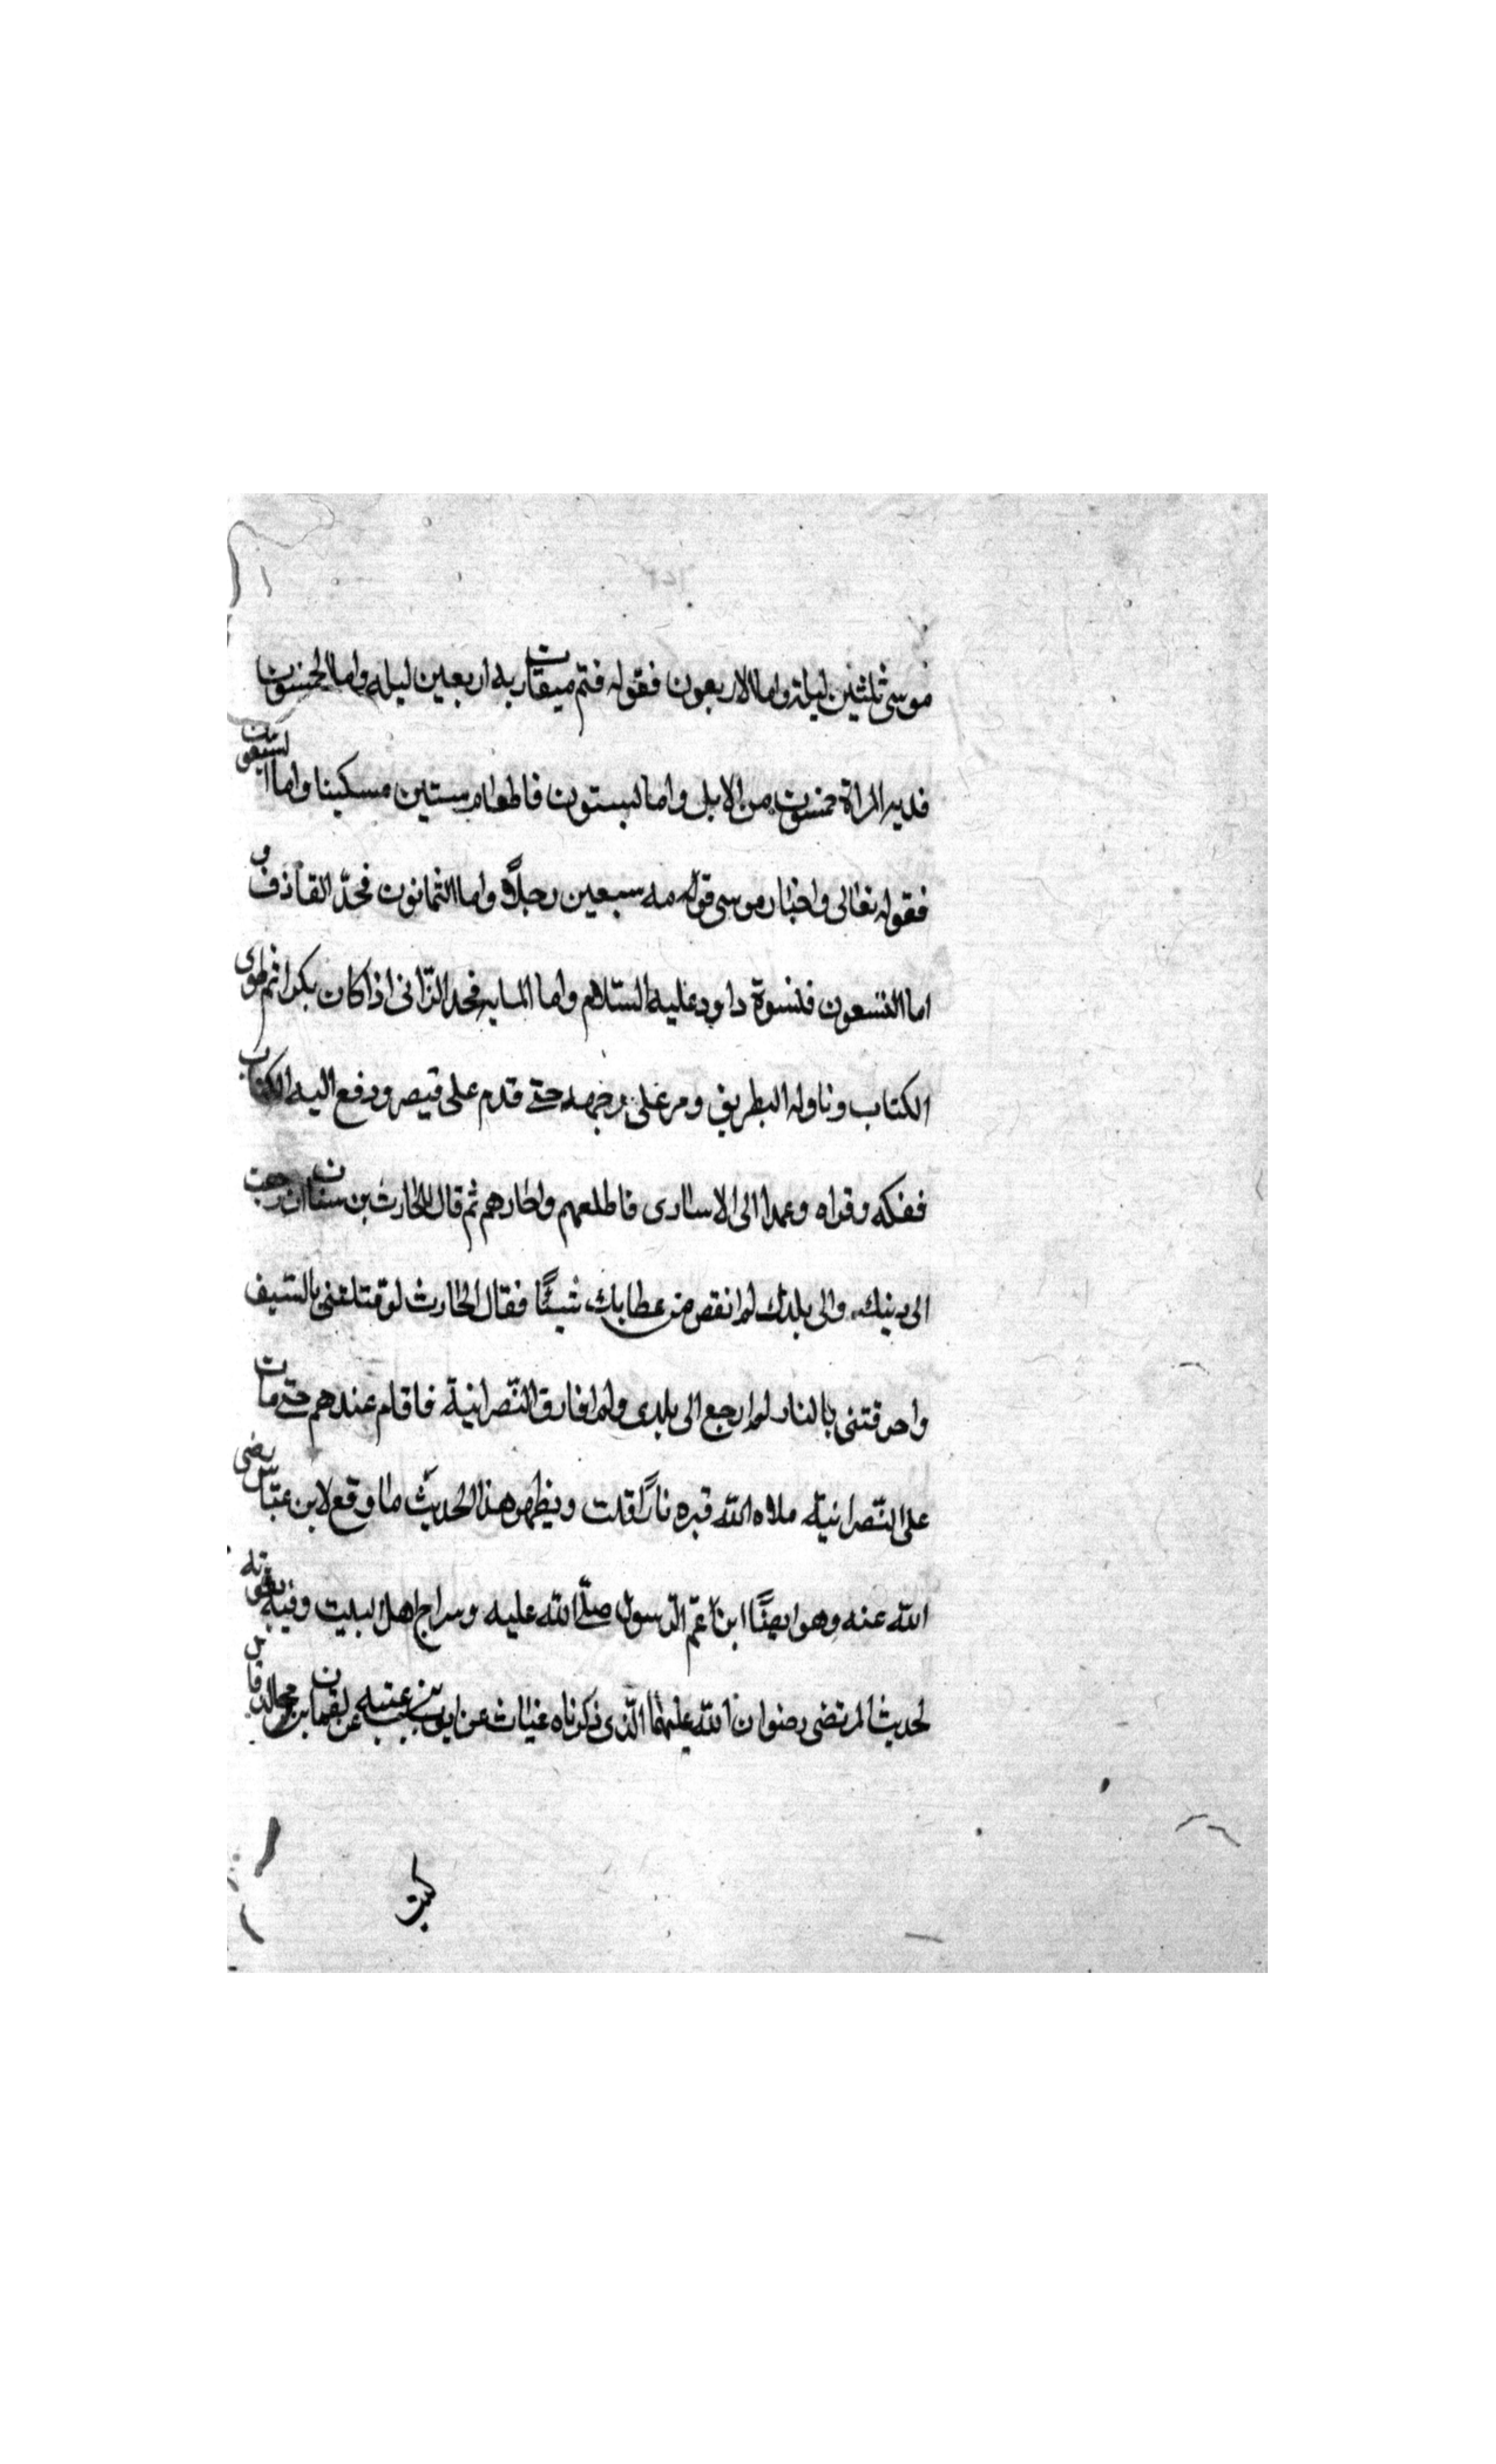 موسى ثلثين ليلة واما الاربعون فقوله فتم ميقات ربه اربعين ليله واما الخمسون
فديه المراة خمسون من الابل واما الستون فاطعام ستين مسكينا واما السبعون
فقوله تعالى واختار موسى قومه سبعين رجلاً واما الثمانون فحدّ القاذف و
اما التسعون فنسوة داود عليه السّلام واما المايه فحد الزّانى اذا كان بكرا ثم طوى
الكتاب وناوله البطريق ومر على وجهه حتى قدم على قيصر ودفع اليه الكتاب
ففكه وقراه وعمد الى الاسارى فاطلعهم واجازهم ثم قال للحارث بن سنان ان رجعت
الى دينك والى بلدك لم انقص من عطايك شيئًا فقال الحارث لو قتلتنى بالسّيف
واحرقتنى بالنار لم ارجع الى بلدى ولم افارق النّصرانية فاقام عندهم حتى مات
على النّصرانيّة ملاه الله قبره نارًا قلت ونظير هذا الحديث ما وقع لابن عبّاس رضى
الله عنه وهو ايضًا ابن عمّ الرّسول صلّى الله عليه وسراج اهل البيت وفيه تقوته
لحديث المرتضى رضوان الله عليهما الّذى ذكرناه غياث عن ايوب بن عتبه عن لقمان بن
كيت